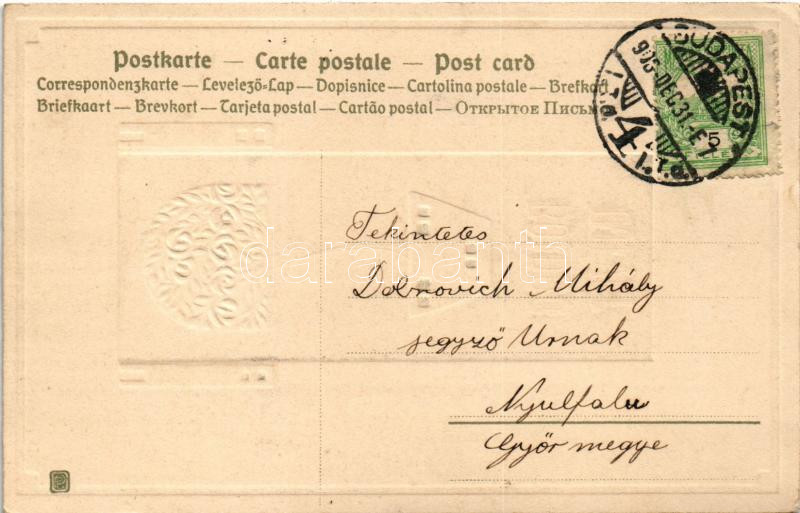 Postkarte — Carte postale — Post card
Correspondenzkarte — Levelező-Lap — Dopisnice — Cartolina postale — Brefko
Briefkaart — Brevkort — Tarjeta postal — Cartão postal — Открытое Письм
BUDAPEST
905 DEC 31
4
5
darabanth
Tekintetes
Dobrovich Mihály
jegyző Urnak
Nyulfalu
Győr megye